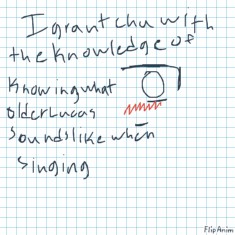 I grant chu with
the knowledge of
Knowing what
older Lucas
Sounds like when
singing
FlipAnim